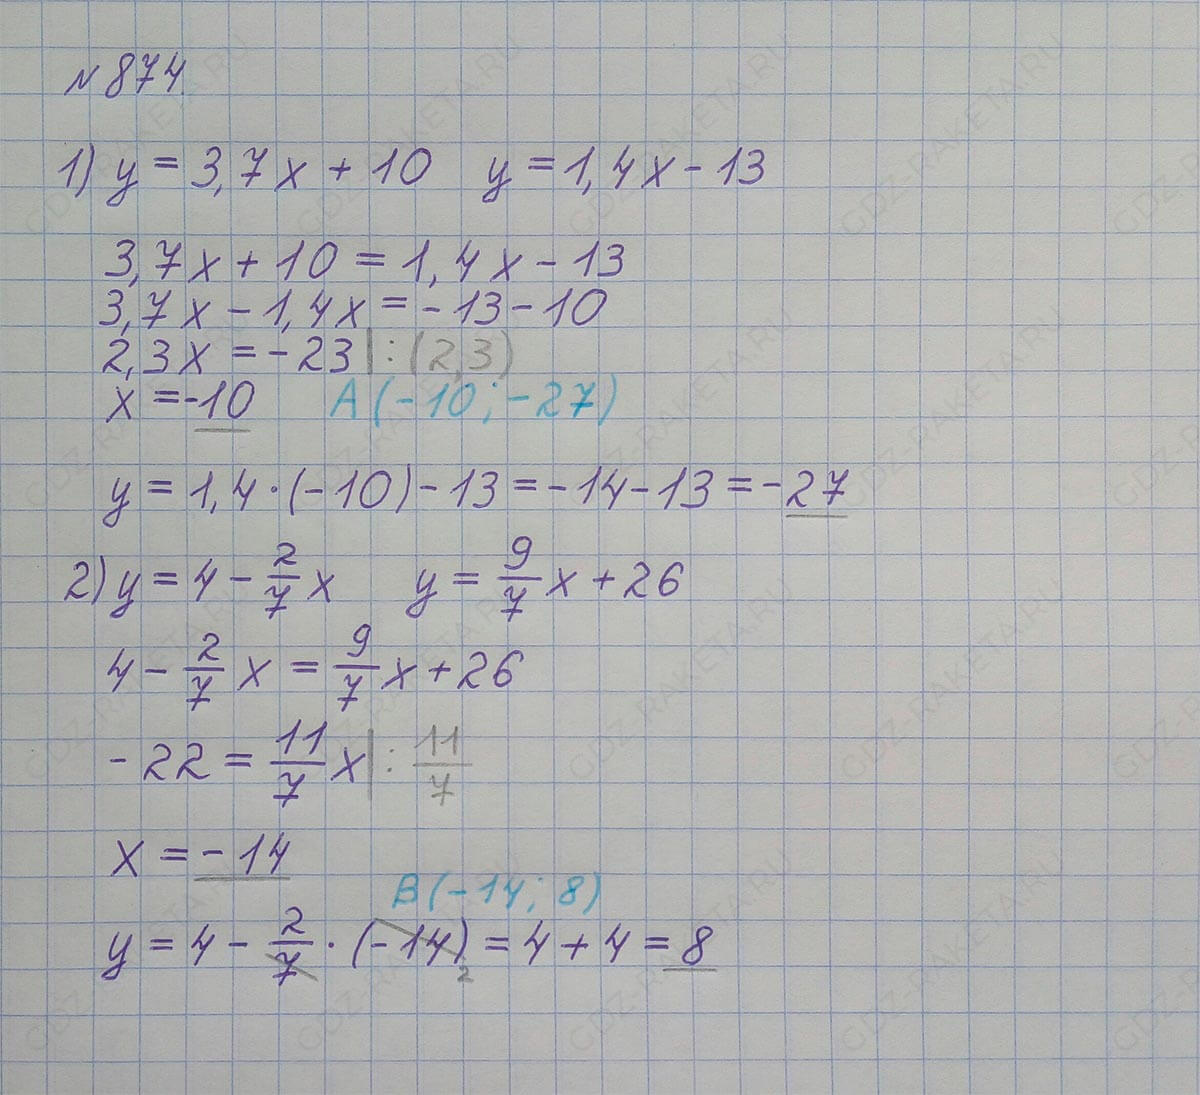 № 874.
1) y = 3,7x + 10 y = 1,4x - 13
3,7x + 10 = 1,4x - 13
3,7x - 1,4x = -13 - 10
2,3x = -23 | : (2,3)
x = -10 A (-10 ; -27)
y = 1,4 · (-10) - 13 = -14 - 13 = -27
2) y = 4 - 2/7 x y = 9/7 x + 26
4 - 2/7 x = 9/7 x + 26
-22 = 11/7 x | : 11/7
x = -14
B (-14 ; 8)
y = 4 - 2/7 · (-14) = 4 + 4 = 8
2
GDZ-RAKETA.RU